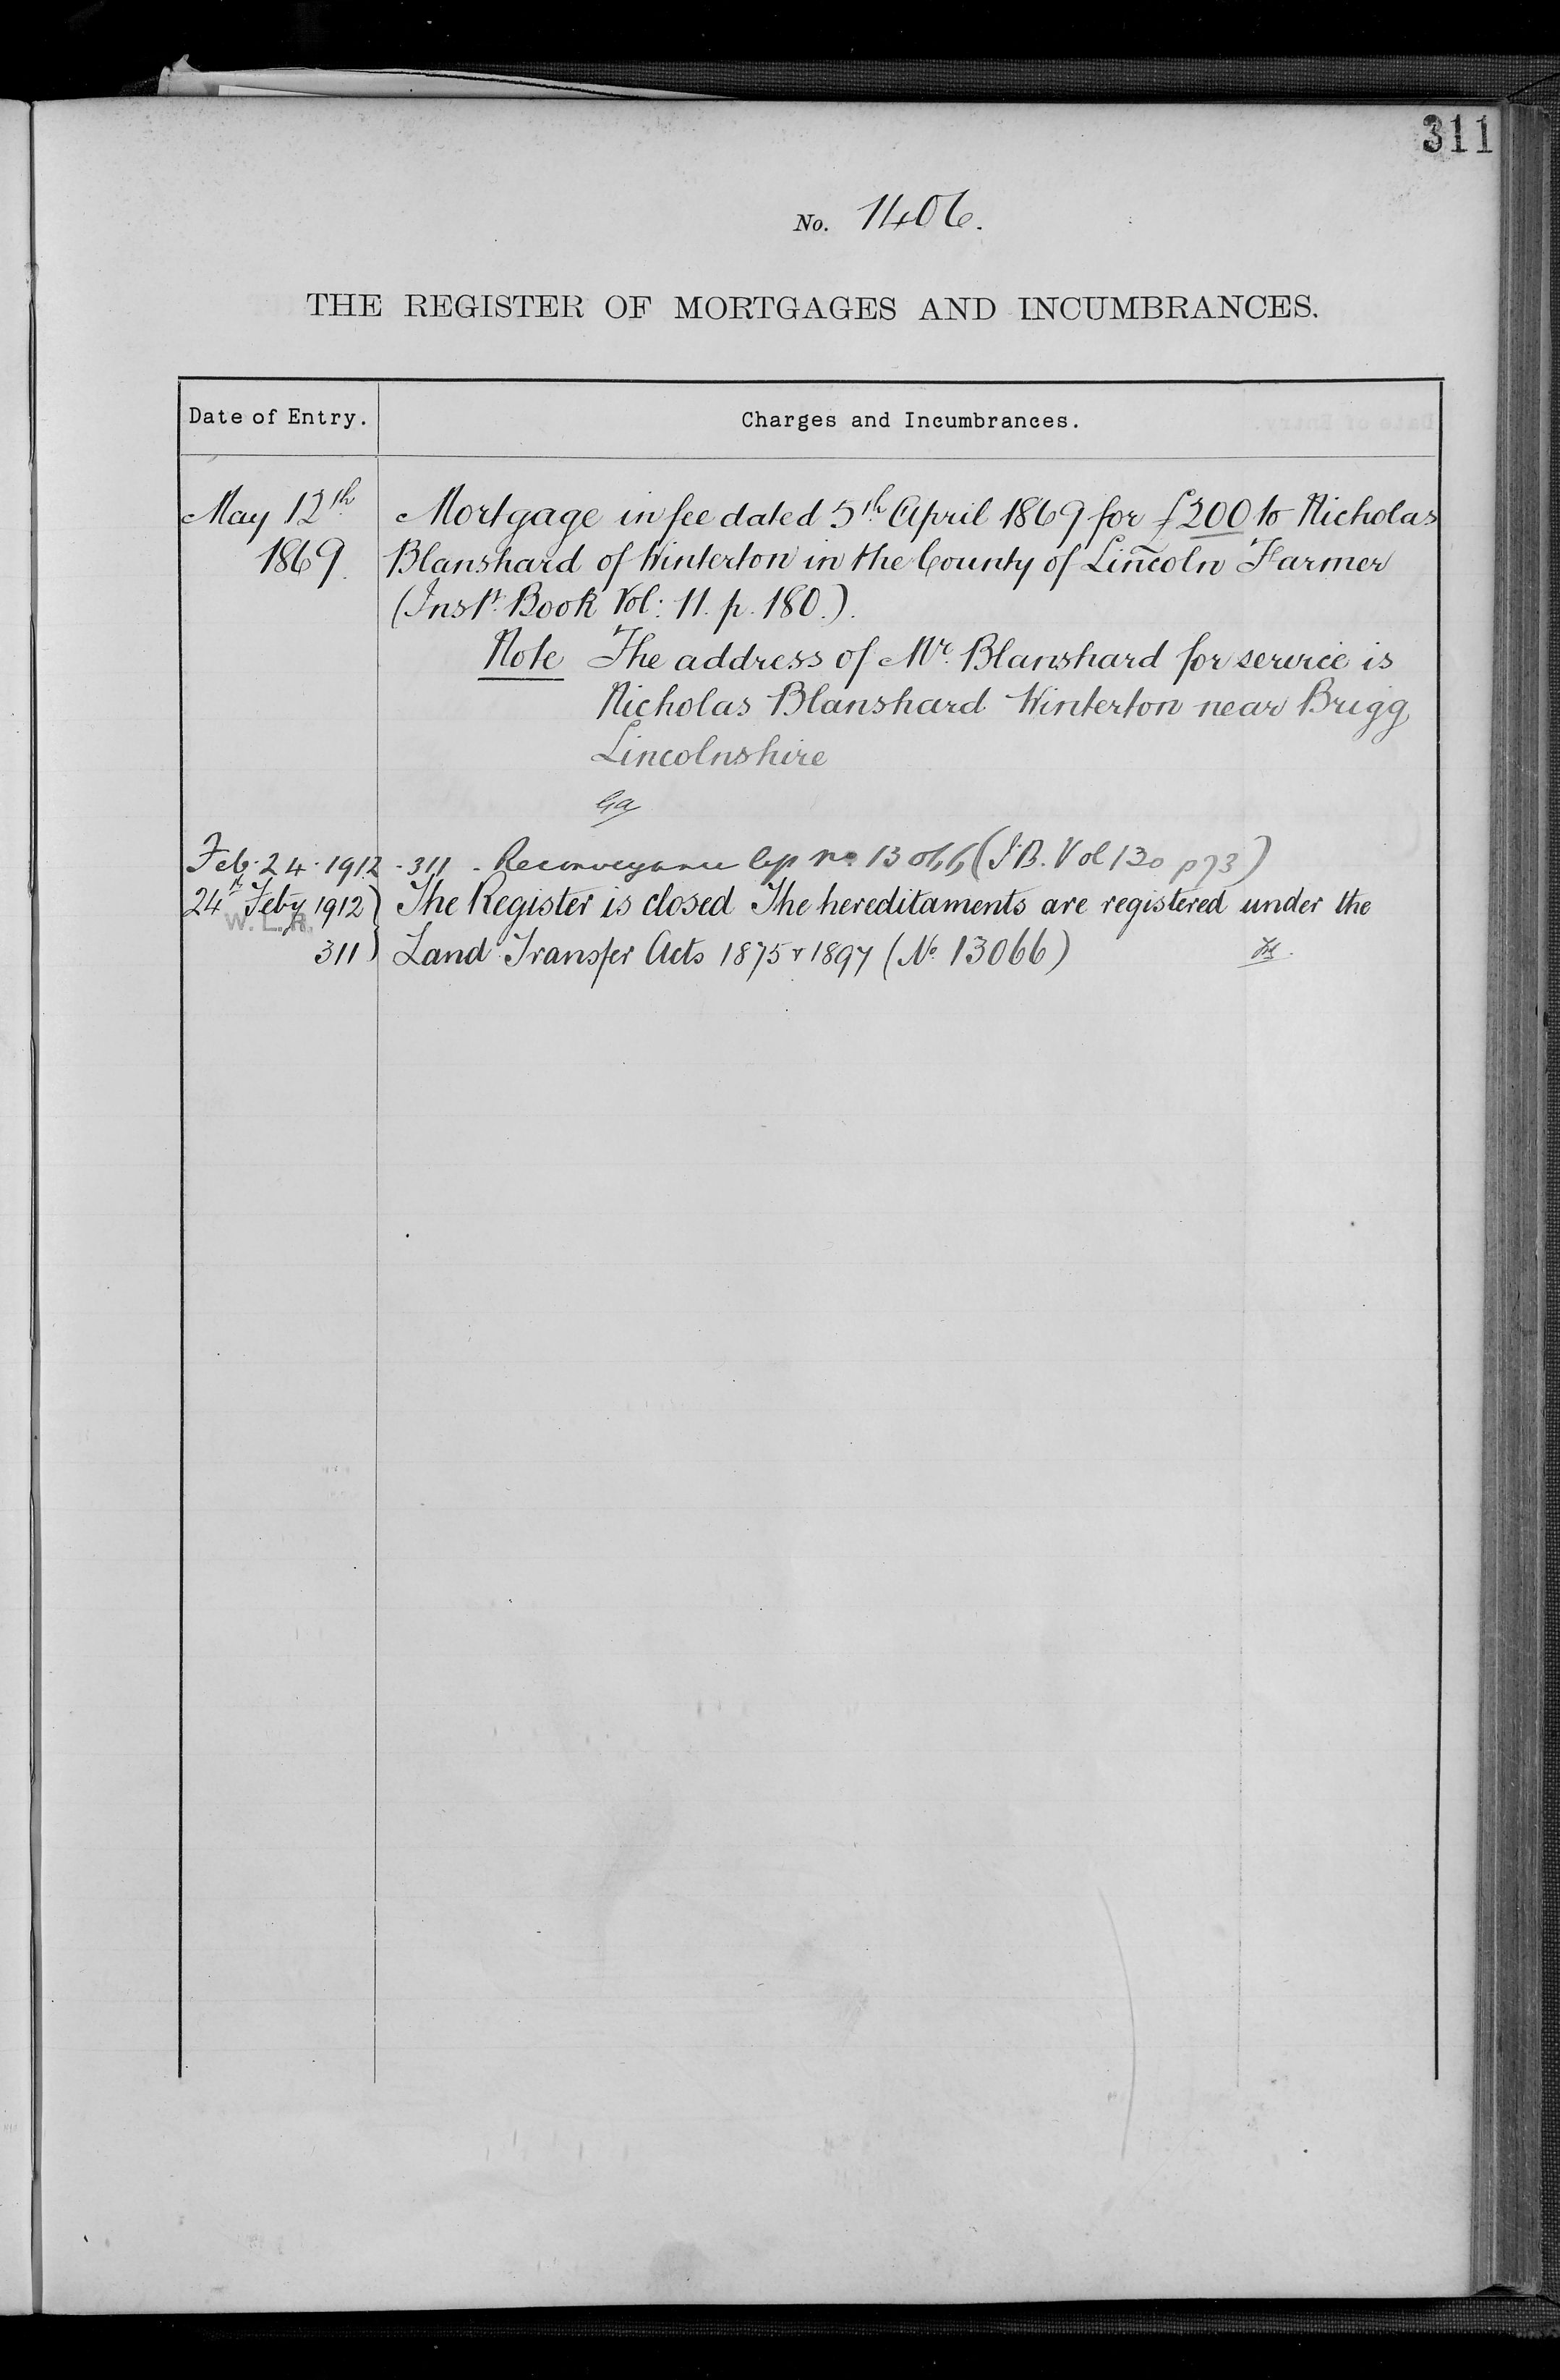 311
No. 1406.
THE REGISTER OF MORTGAGES AND INCUMBRANCES.
Date of Entry. Charges and Incumbrances.
May 12th Mortgage in fee dated 5th April 1869 for £200 to Nicholas
1869. Blanshard of Winterton in the County of Lincoln Farmer
(Inst. Book Vol: 11. p. 180.).
Note The address of Mr. Blanshard for service is
Nicholas Blanshard Winterton near Brigg
Lincolnshire
Feb. 24. 1912 - 311 - Reconveyance no 13066 (I.B. Vol 130 p73)
24th Feby 1912) The Register is closed The hereditaments are registered under the
W. L. R.
311) Land Transfer Acts 1875 & 1897 (No. 13066)